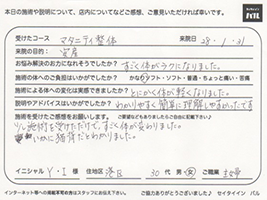 本日の施術や説明について、店内についてなどご感想、ご意見いただければ幸いです。
バル
受けたコース マタニティ整体 来院日 28・1・31
来院の目的: 安産
お悩み解決のお力になれそうでしたか? すごく体がラクになりました。
施術の体へのご負担はいかがでしたか? かなりソフト・ソフト・普通・ちょっと痛い・苦痛
施術による体への変化は実感できましたか? とにかく体が軽くなりました。
説明やアドバイスはいかがでしたか? わかりやすく簡単に理解しやすかったです
施術を受けただけで、すごく体が変わりました。
イニシャル Y・I 様 住地区 港区 30代 男・女 ご職業 主婦
インターネット等への掲載掲示の方はスタッフにお伝え下さい。 ご協力ありがとうございました。セイタイイン バル